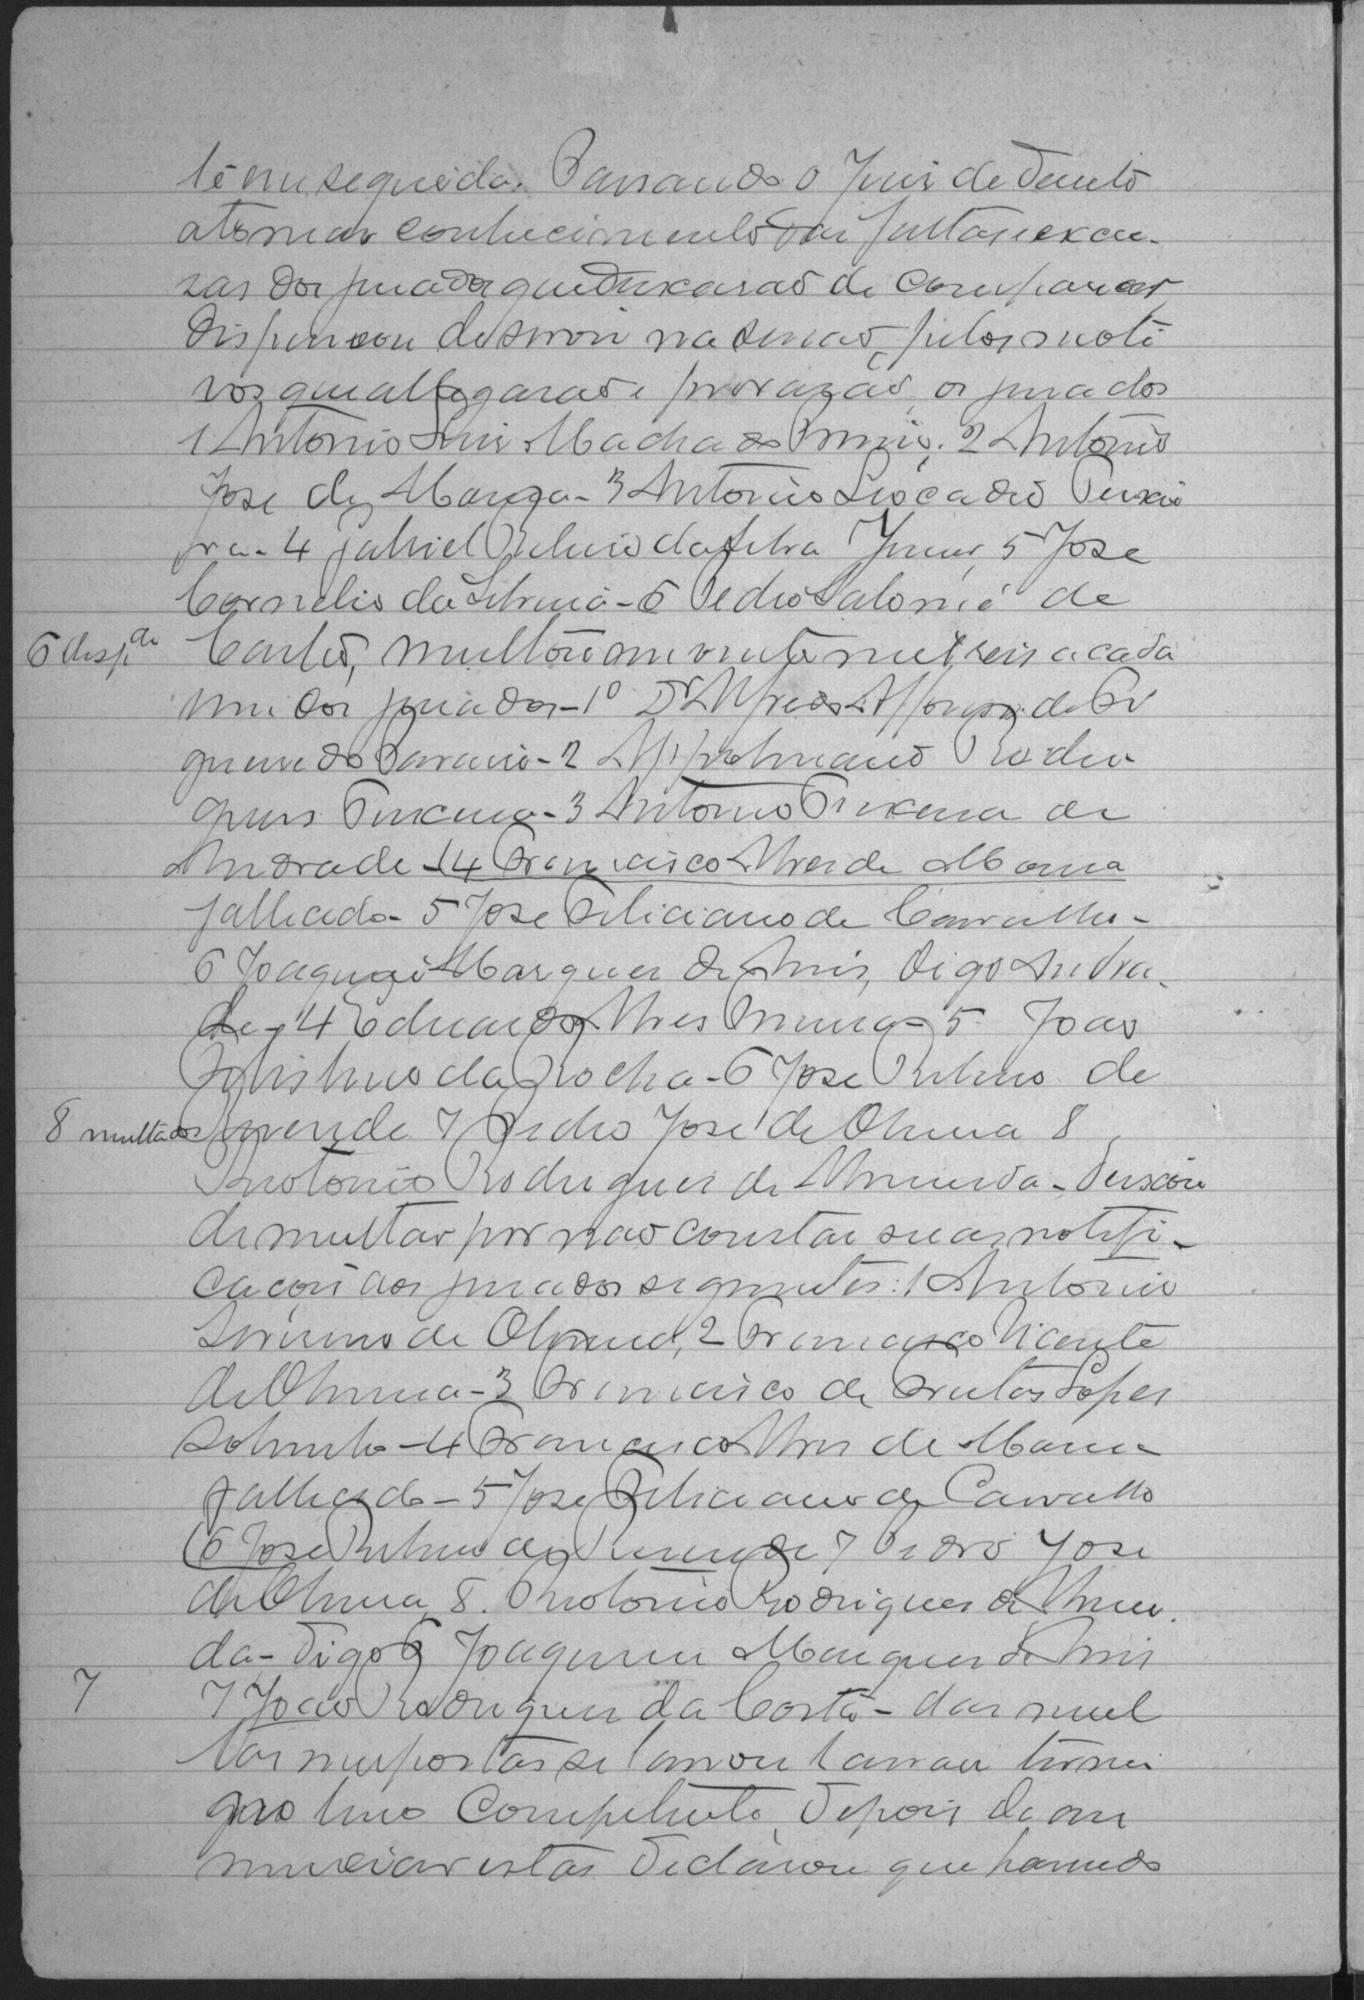 tê em seguida. Passando o Juis de Dereito
a tomar conhecimento das faltas e excu-
sas dos jurados que deixarão de comparecer,
dispensou de servir na sessão, pelos moti
vos que allegarão e provarão, os jurados
1 Antonio Luis Machado 2 Antonio
Jose de - 3 Antonio Leocadio Teixei
ra - 4 Gabriel Ribeiro da Silva Junior, 5 Jose
Cornelio da Silveira - 6 Pedro Salomé de
6 disp.dos Castro, multou em vinte mil reis a cada
um dos jurados - 1º Dr Alfredo Affonso de
- 2 Rodri
gues Teixeira - 3 Antonio Teixeira de
Andrade - 4 Francisco Alves de Moura
fallecido - 5 Jose Feliciano de Carvalho -
6 Joaquim Marques de Assis, digo Andra
de - 4 Eduardo Alves - 5 João
da Rocha - 6 Jose Ribeiro de
8 multados Resende 7 Pedro Jose de Oliveira 8
Antonio Rodrigues de Almeida - Deixou
de multar por não constar suas notifi-
cações aos jurados seguintes: 1 Antonio
Severino de Oliveira, 2 Francisco Vicente
de Oliveira - 3 Francisco de Freitas Lopes
Sobrinho - 4 Francisco Alves de Moura
fallecido - 5 Jose Feliciano de Carvalho
6 Jose Ribeiro de Resende 7 Pedro Jose
de Oliveira, 8. Antonio Rodrigues de Almei
da - digo 6 Joaquim Marques de Assis
7 7 João Rodrigues da Costa - das mul
tas impostas se lavou
competente, depois de an
nunciar estas declarou que havendo